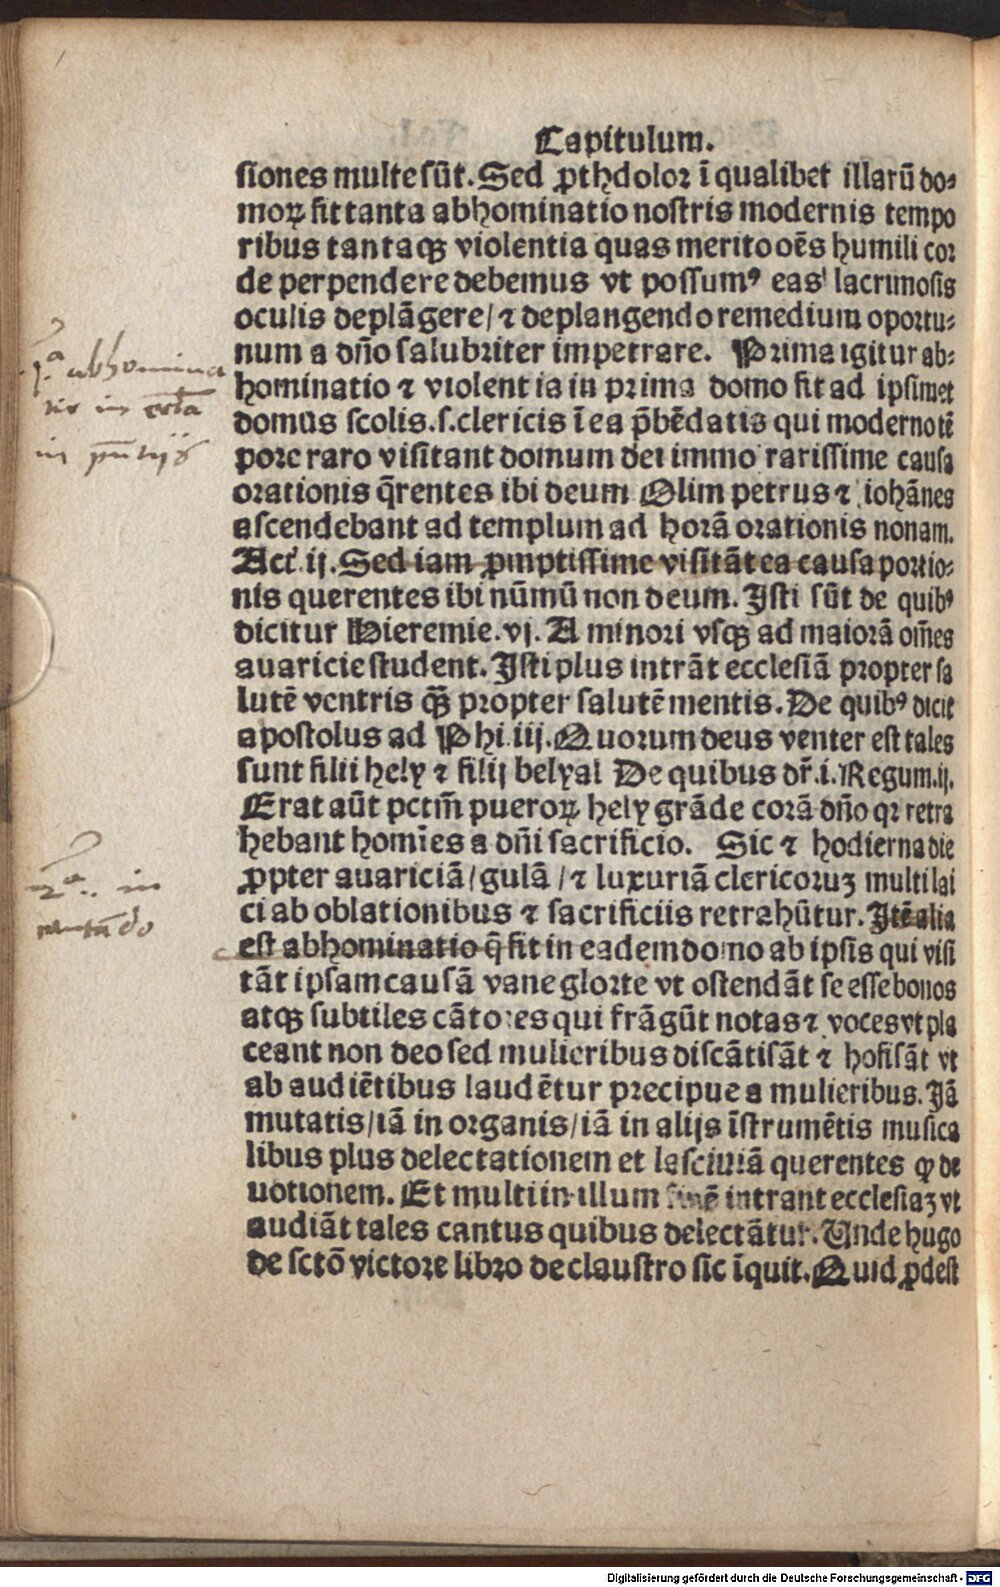 Capitulum.
siones multe sūt. Sed ꝓthdolor ī qualibet illarū do⸗
moꝝ fit tanta abhominatio nostris modernis tempo
ribus tantaqꝫ violentia quas merito oēs humili cor
de perpendere debemus vt possumꝰ eas lacrimosis
oculis deplāgere/ ⁊ deplangendo remedium oportu⸗
num a dn̄o salubriter impetrare. Prima igitur ab⸗
hominatio ⁊ violentia in prima domo fit ad ipsimet
domus scolis .s. clericis ī ea p̄bēdatis qui moderno tē
pore raro visitant domum dei immo rarissime causa
orationis q̄rentes ibi deum Olim petrus ⁊ iohānes
ascendebant ad templum ad horā orationis nonam.
Act. ij. Sed iam ꝓmptissime visitāt ea causa portio⸗
nis querentes ibi nūmū non deum. Isti sūt de quibꝰ
dicitur Hieremie. vj. A minori vsqꝫ ad maiorā om̄es
auaricie student. Isti plus intrāt ecclesiā propter sa
lutē ventris qꝫ̄ propter salutē mentis. De quibꝰ dicit
apostolus ad Phi. iij. Quorum deus venter est tales
sunt filii hely ⁊ filij belyal De quibus dr̄. i. Regum. ij.
Erat aūt pctm̄ pueroꝝ hely grāde corā dn̄o qꝛ retra
hebant homīes a dn̄i sacrificio. Sic ⁊ hodierna die
ꝓpter auariciā/ gulā/ ⁊ luxuriā clericoruꝫ multi lai
ci ab oblationibus ⁊ sacrificiis retrahūtur. Itē alia
est abhominatio q̄ fit in eadem domo ab ipsis qui visi
tāt ipsam causā vane glorie vt ostendāt se esse bonos
atqꝫ subtiles cātores qui frāgūt notas ⁊ voces vt pla
ceant non deo sed mulieribus discātisāt ⁊ hofisāt vt
ab audiētibus laudētur precipue a mulieribus. Iā
mutatis/ iā in organis/ iā in alijs īstrumētis musica
libus plus delectationem et lasciuiā querentes ꝙ de
uotionem. Et multi in illum finē intrant ecclesiaꝫ vt
audiāt tales cantus quibus delectātur. Unde hugo
de sctō victore libro de claustro sic īquit. Quid ꝓdest
1ª abhomina
tio in
in
2ª. in
cantādo
Digitalisierung gefördert durch die Deutsche Forschungsgemeinschaft - DFG